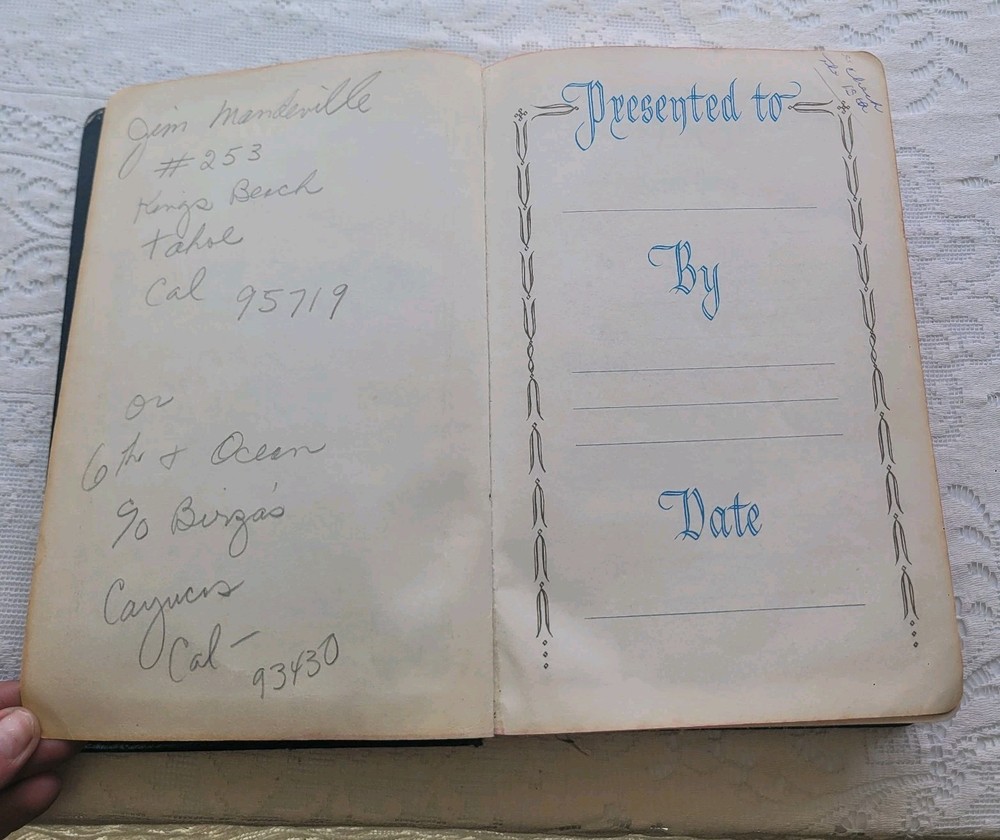 Jim Mandeville
#253
Kings Beach
Tahoe
Cal 95719
or
6th & Ocean
c/o Birza's
Cayucos
Cal - 93430
Presented to
By
Date